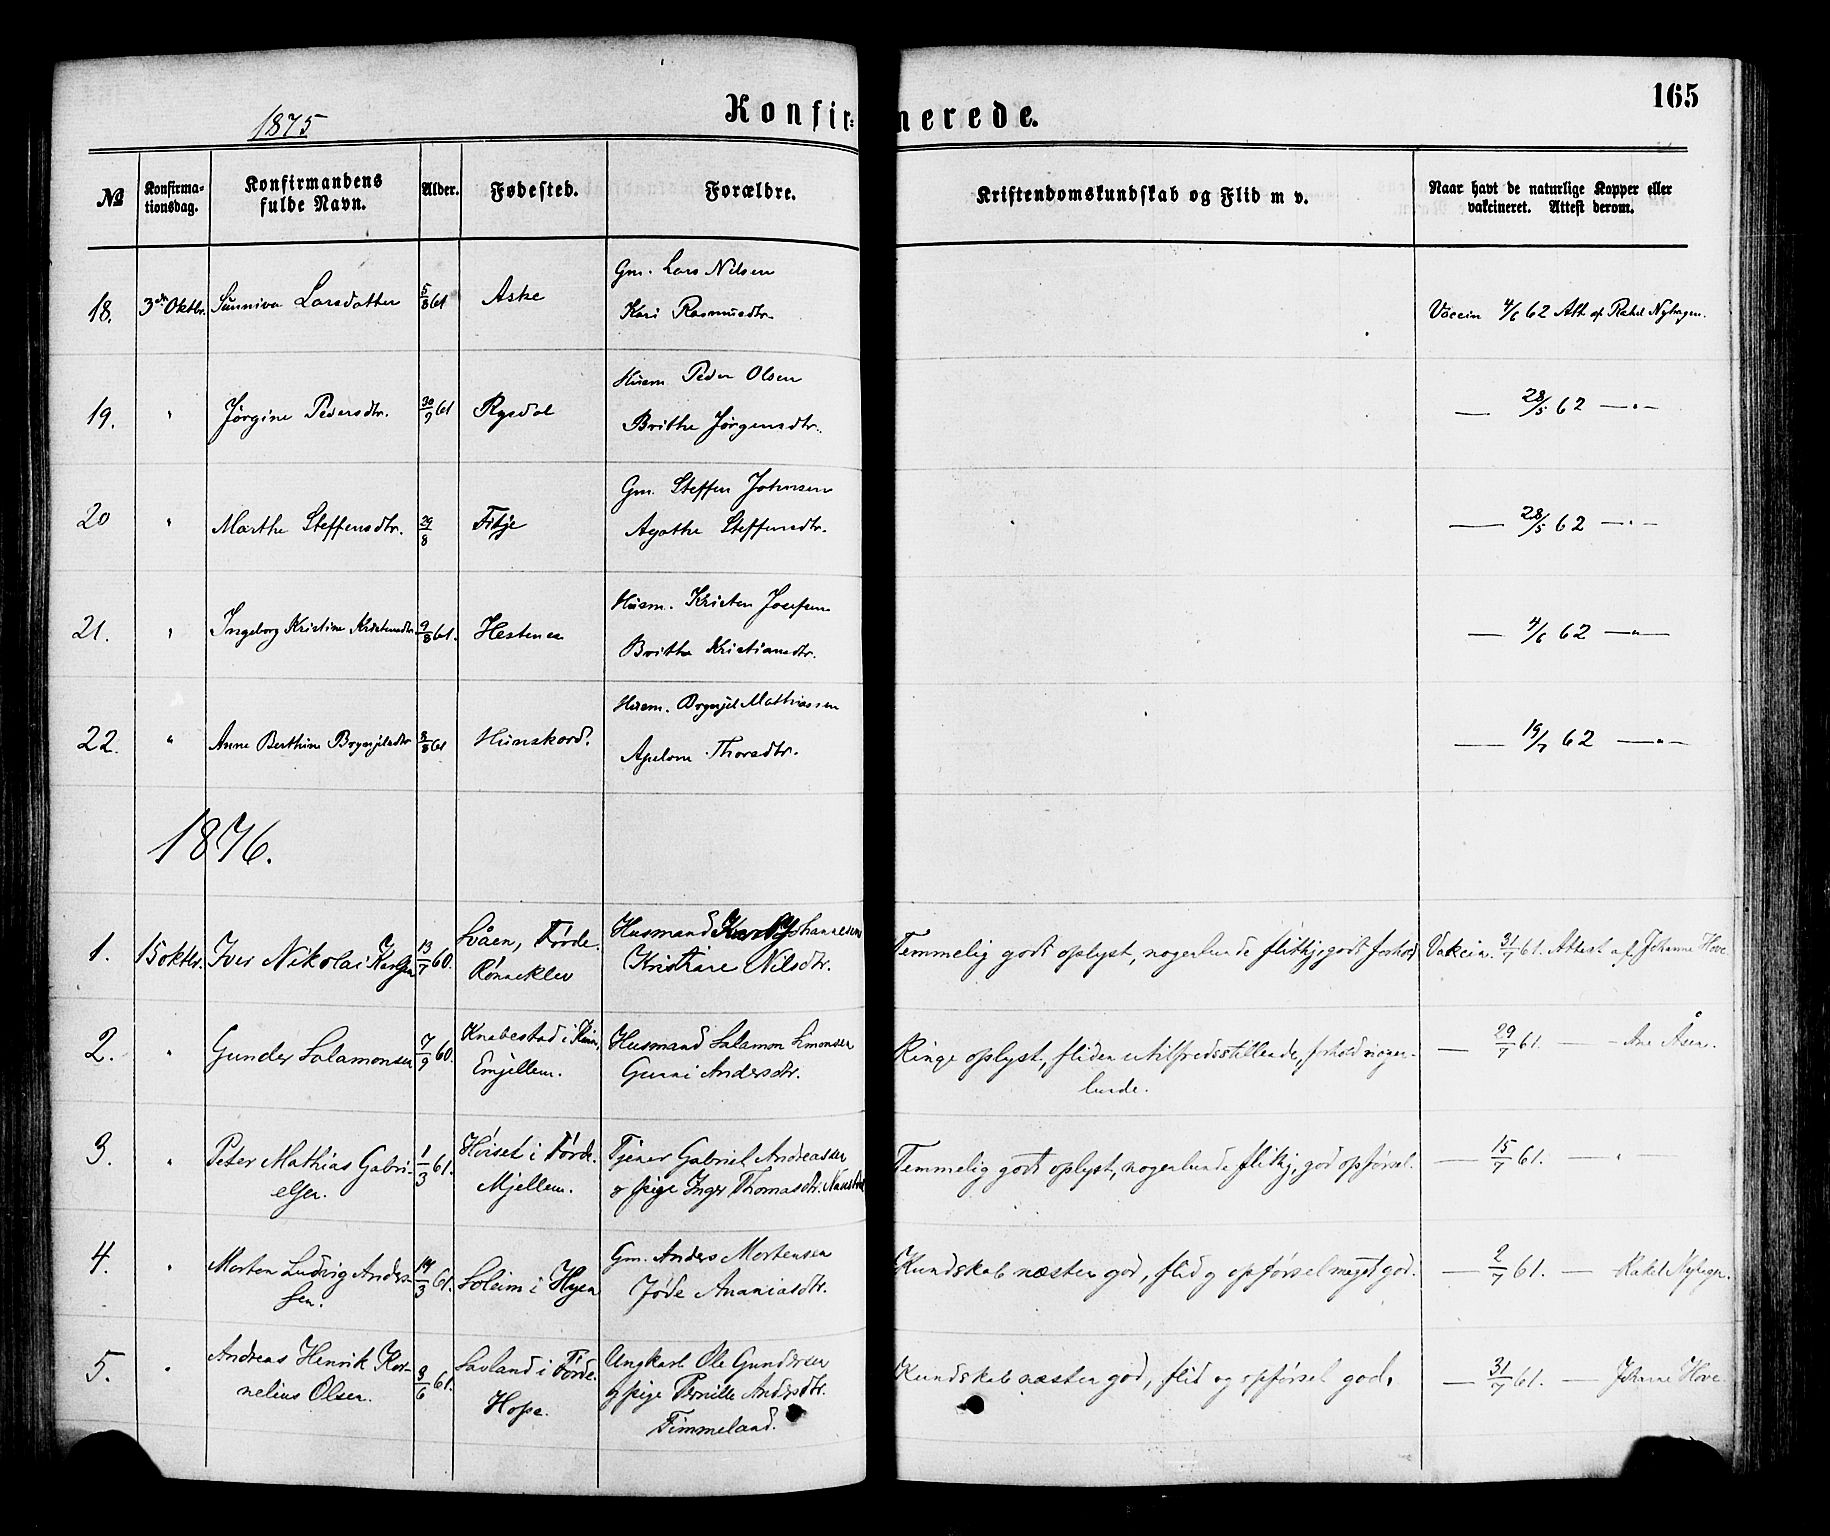 165
1875
Konfirmerede.
№
Konfirma-
tionsdag.
Konfirmandens
fulde Navn.
Alder.
Fødested.
Forældre.
Kristendomskundskab og Flid m v.
Naar havt de naturlige Kopper eller
vakcineret. Attest derom.
18. 3de Oktbr. Sünniva Larsdatter 5/8 61 Aske
Gm. Lars Nilsen
Kari Rasmusdtr
Vaccin 4/6 62 Att. af Rakel Nyhagen.
19. " Jørgine Pedersdtr. 30/9 61 Rysdal
Husm. Peder Olsen
Brithe Jørgensdtr.
— 28/5 62 —"—
20 " Marthe Steffensdtr. 29/8 Fitje
Gm. Steffen Johnsen
Agathe Steffensdtr.
— 28/5 62 —"—
21. " Ingeborg Kristine Kristensdtr 9/8 61. Hestenes
Husm. Kristen Josefsen
Brithe Kristiansdtr.
— 4/6 62 —"—
22. " Anne Berthine Brynjelsdtr 8/8 61 Hunskord.
Husm. Brynjel Mathiassen
Apelone Thorsdtr.
— 19/7 62 —"—
1876.
1. 15 oktbr. Iver Nikolai Karlsen 13/7 60.
Svåen, Førde.
Rønneklev
Husmand Karl Johannesen
Kristiane Nilsdtr.
Temmelig godt oplyst, nogenlunde flittig, godt forhold
Vakcin. 31/7 61. Attest af Johanne Hove
2. " Gunder Salamonsen 7/9 60.
Knabestad i Kinn,
Emjellem.
Husmand Salamon Simonsen
Gunni Andersdtr.
Ringe oplyst, fliden utilfredsstillende, forhold nogen-
lunde.
— 29/7 61. — Ane Åsen.
3. " Peter Mathias Gabri-
elsen. 1/3 61.
Høiset i Førde.
Mjellem.
Tjener Gabriel Andreassen
& pige Inger Thomasdtr. Naustdal
Temmelig godt oplyst, nogenlunde flittig, god opførsel.
— 15/7 61. — " —
4. " Morten Ludvig Anders-
sen. 14/3 61. Soleim i Hyen
Gm. Anders Mortensen
Jøde Ananiasdtr.
Kundskab næsten god, flid og opførsel meget god.
— 2/7 61. — Rakel Nyhagen.
5. " Andreas Henrik Kor-
nelius Olsen. 3/6 61.
Savland i Førde.
Hope.
Ungkarl Ole Gundersen
og pige Pernille Andersdtr.
Timmeland.
Kundskab næsten god, flid og opførsel god.
— 31/7 61. — Johanne Hove.